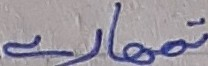 تمھارے